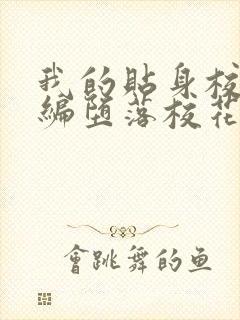 我的貼身校
編墮落校花
會跳舞的鱼